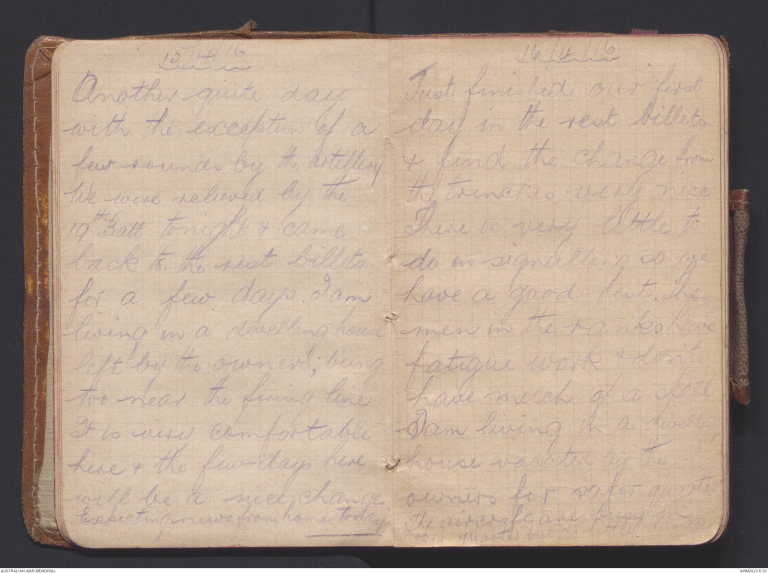 15/4/16
Another quite day
with the exception of a
few rounds by the artillery
We were relieved by the
19th Batt tonight & came
back to the rest billets
for a few days. I am
living in a dwelling house
left by the owners, being
too near the firing line
It is very comfortable
here & the few days here
will be a nice change
Expecting news from home today
16/4/16
Just finished our first
day in the rest billets
& find the change from
the trinches very nice
There is very little to
do in signalling so we
have a good time. The
men in the ranks have
fatigue work & don't
have much of a spell
I am living in a dwelling
house vacated by the
owners for safer quarters
The aircraft are busy in
this quarter but little damage
AUSTRALIAN WAR MEMORIAL